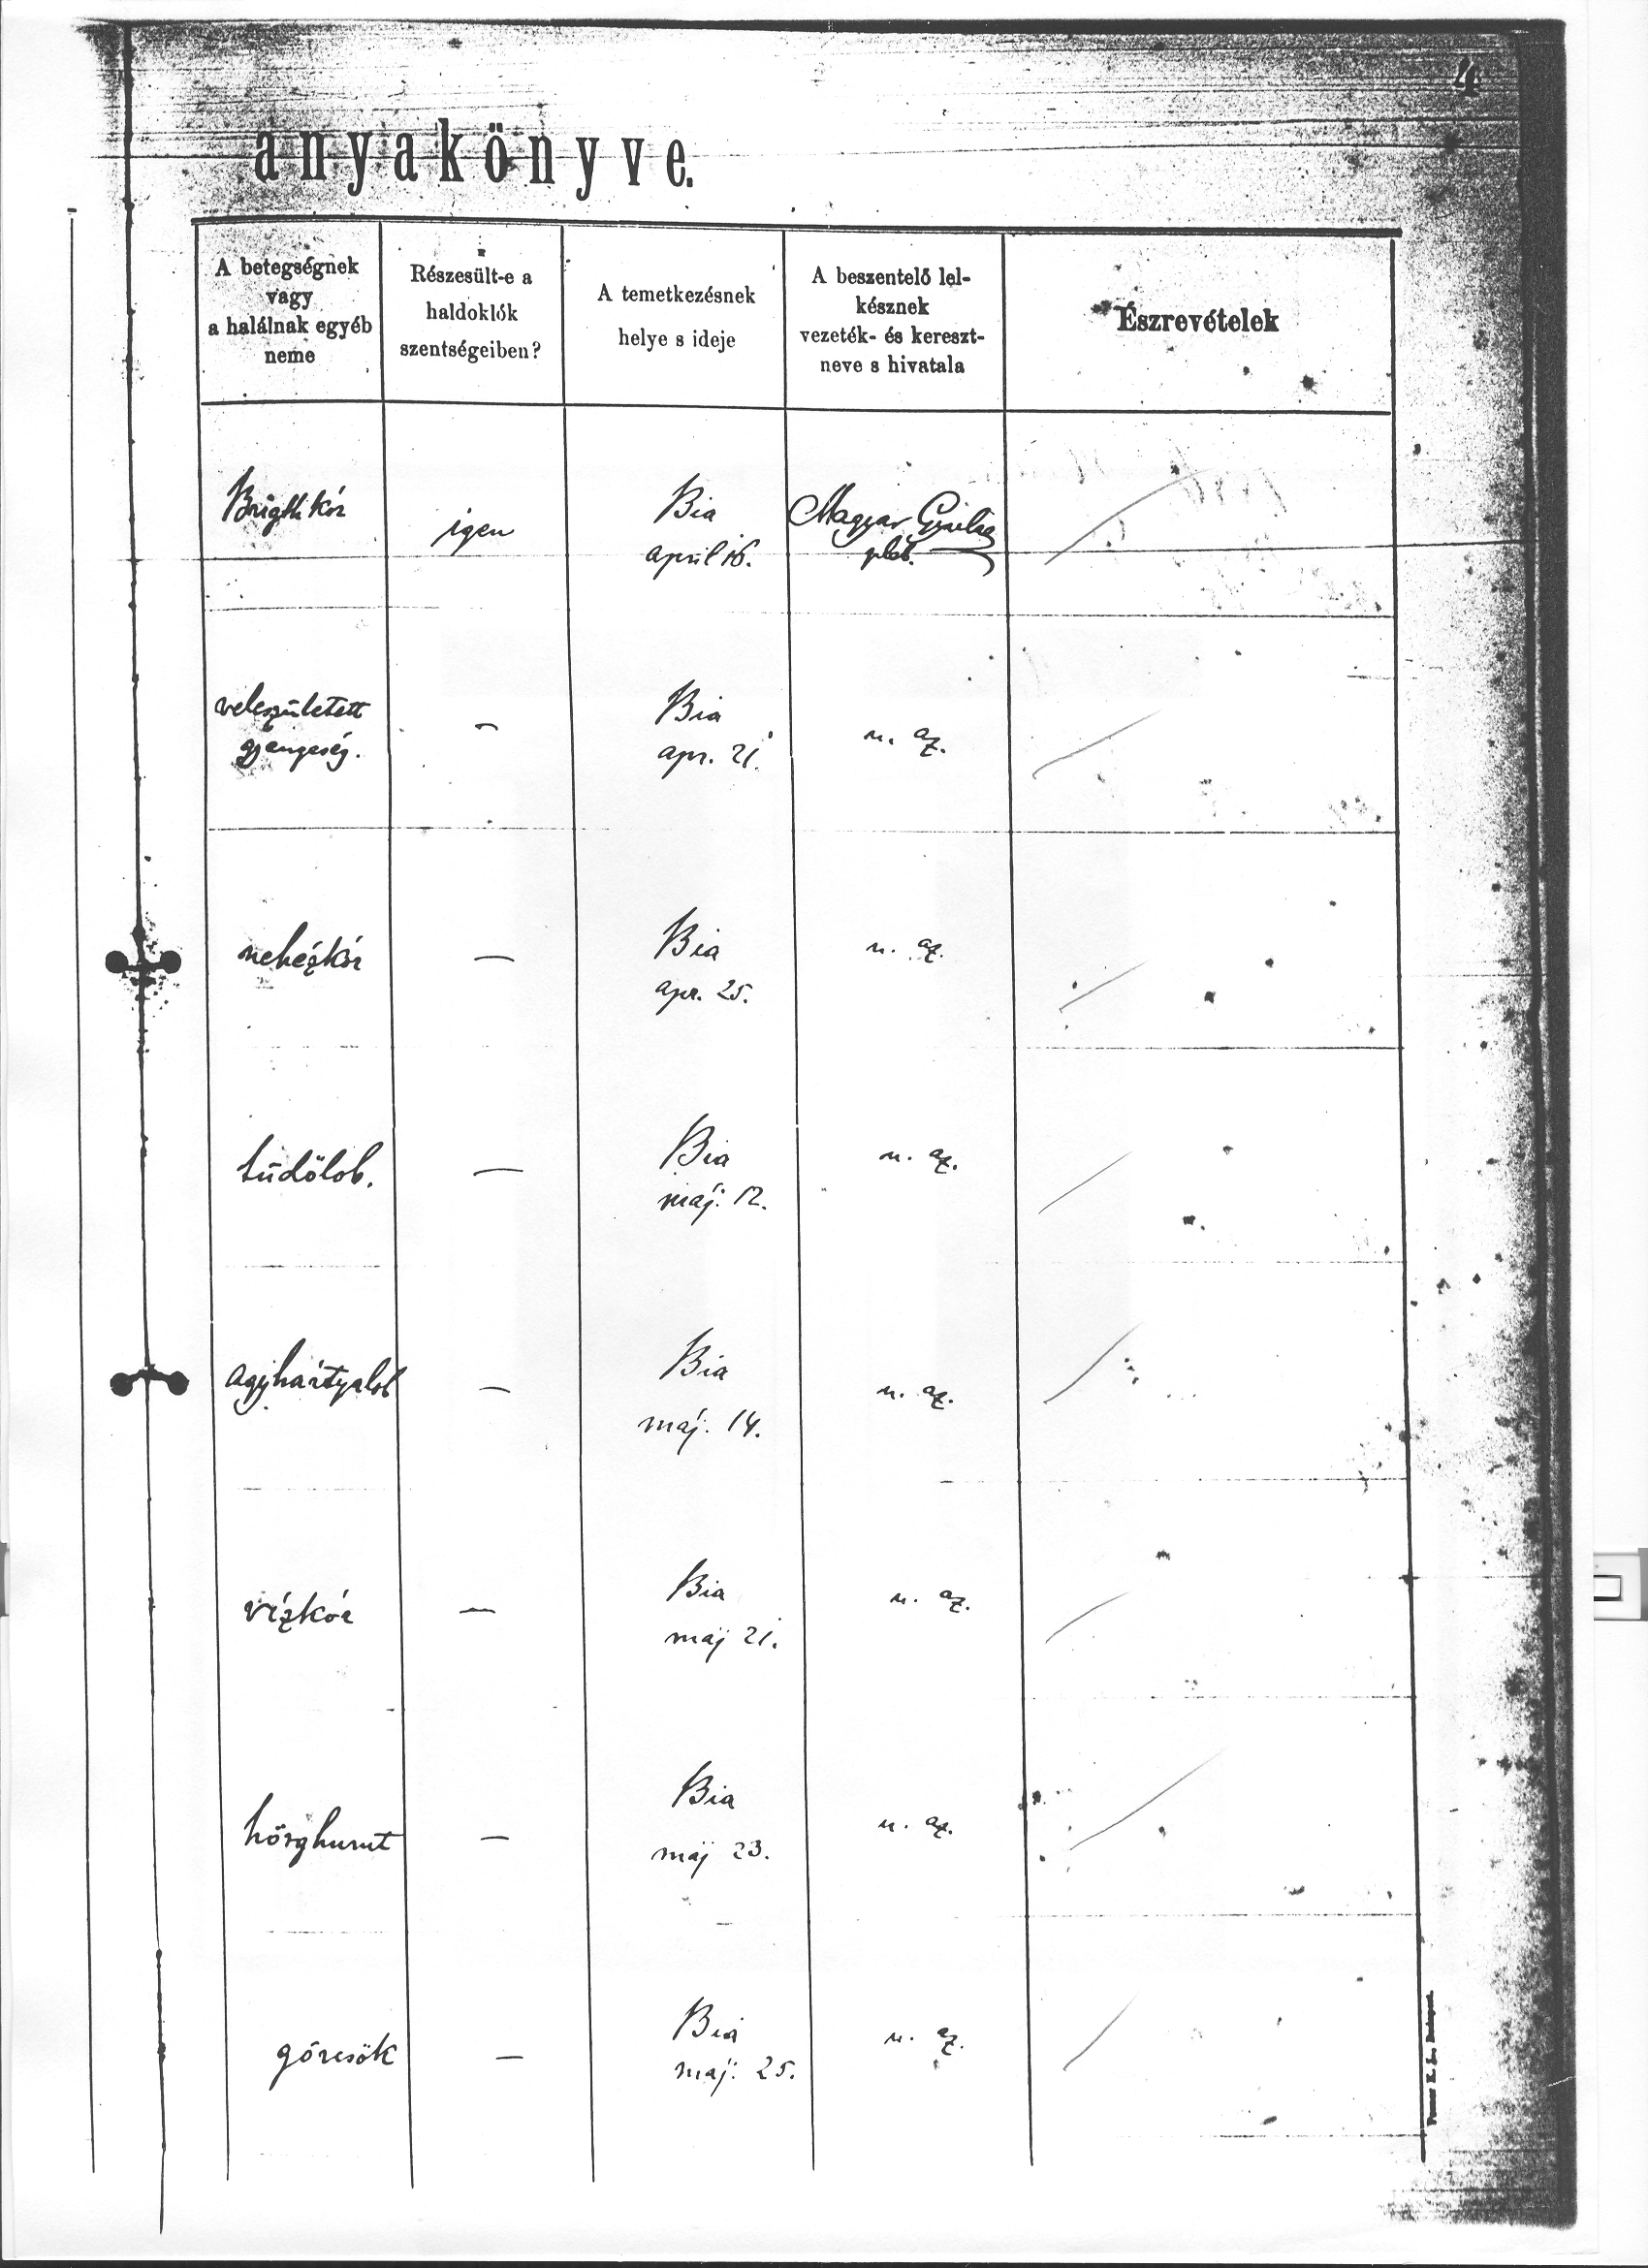 4
anyakönyve.
A betegségnek
vagy
a halálnak egyéb
neme
Részesült-e a
haldoklók
szentségeiben?
A temetkezésnek
helye s ideje
A beszentelő lel-
késznek
vezeték- és kereszt-
neve s hivatala
Észrevételek
Brigthkór
igen
Bia
april 16.
Magyar
pléb.
veleszületett
gyengeség.
–
Bia
apr. 21.
u. az.
nehézkór
—
Bia
apr. 25.
u. az.
tüdőlob.
—
Bia
máj. 12.
u. az.
agyhártyalob
—
Bia
máj. 14.
u. az.
vízkór
—
Bia
máj 21.
u. az.
hörghurut
—
Bia
máj 23.
u. az.
görcsök
—
Bia
máj. 25.
u. az.
Posner K. L. Budapest.